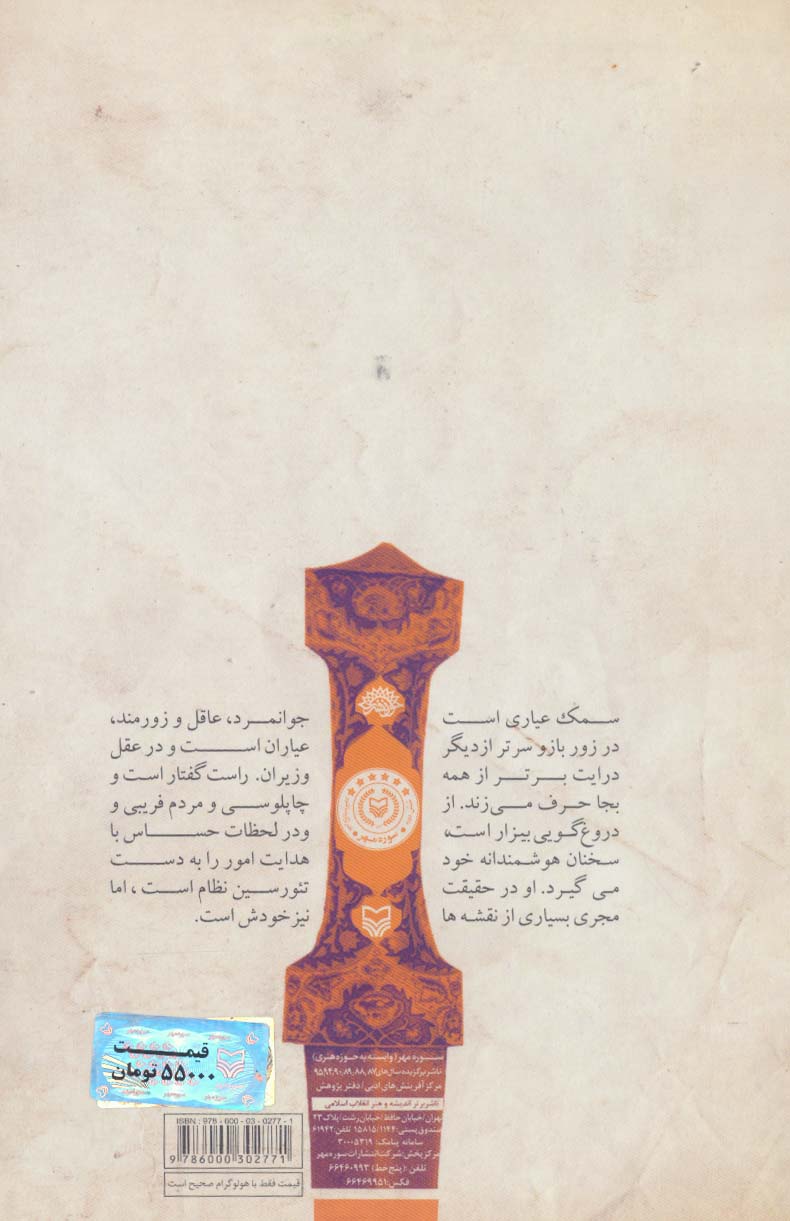 سمک عیاری است جوانمرد، عاقل و زورمند،
در زور بازو سرتر از دیگر عیاران است و در عقل
درایت برتر از همه وزیران. راست گفتار است و
بجا حرف می‌زند. از چاپلوسی و مردم فریبی و
دروغ‌گویی بیزار است، ودر لحظات حساس با
سخنان هوشمندانه خود هدایت امور را به دست
می گیرد. او در حقیقت تئورسین نظام است ، اما
مجری بسیاری از نقشه ها نیز خودش است.
سوره مهر
قیمت
۵۵۰۰۰ تومان
سوره مهر (وابسته به حوزه هنری)
ناشر برگزیده سال‌های ۸۷، ۸۸، ۸۹، ۹۰، ۹۴ و ۹۵
مرکز آفرینش‌های ادبی / دفتر پژوهش
ناشر برتر اندیشه و هنر انقلاب اسلامی
تهران/خیابان حافظ/خیابان رشت/پلاک ۲۳
صندوق پستی: ۱۱۴۴/۱۵۸۱۵ تلفن: ۶۱۹۴۲
سامانه پیامک: ۳۰۰۰۵۳۱۹
مرکز پخش: شرکت انتشارات سوره مهر
تلفن: (پنج خط) ۶۶۴۶۰۹۹۳
فکس: ۶۶۴۶۹۹۵۱
ISBN : 978 - 600 - 03 - 0277 - 1
9 786000 302771
قیمت فقط با هولوگرام صحیح است